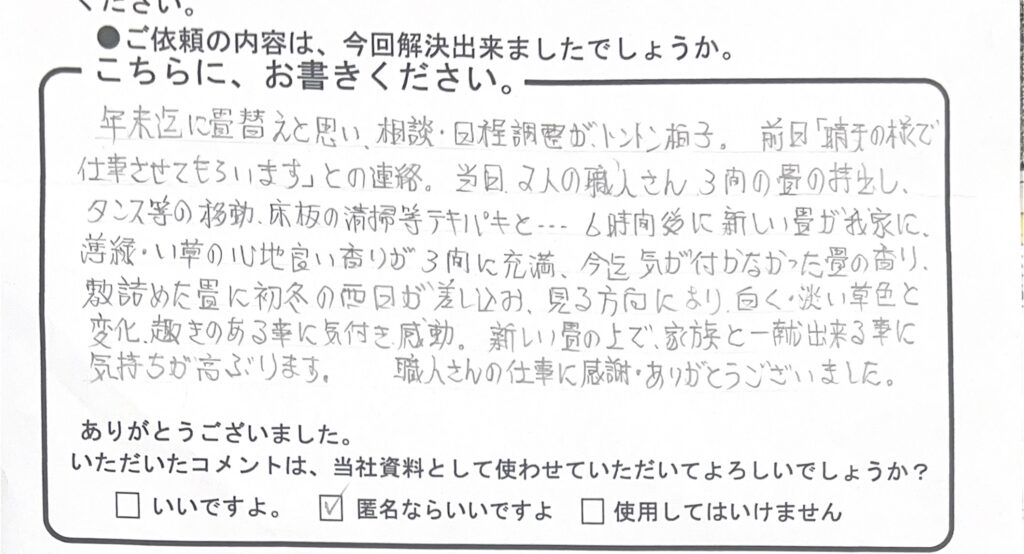 ください。
●ご依頼の内容は、今回解決出来ましたでしょうか。
こちらに、お書きください。
年末迄に畳替えと思い、相談・日程調整が、トントン拍子。 前日「晴天の様で
仕事させてもらいます」との連絡。 当日、2人の職人さん、3間の畳の持出し、
タンス等の移動、床板の清掃等テキパキと… 6時間後に新しい畳が我家に、
薄緑・い草の心地良い香りが3間に充満、今迄気が付かなかった畳の香り、
敷詰めた畳に初冬の西日が差し込み、見る方向により、白く・淡い草色と
変化、趣きのある事に気付き、感動。 新しい畳の上で、家族と一献出来る事に
気持ちが高ぶります。 職人さんの仕事に感謝・ありがとうございました。
ありがとうございました。
いただいたコメントは、当社資料として使わせていただいてよろしいでしょうか？
□ いいですよ。 ☑ 匿名ならいいですよ □ 使用してはいけません